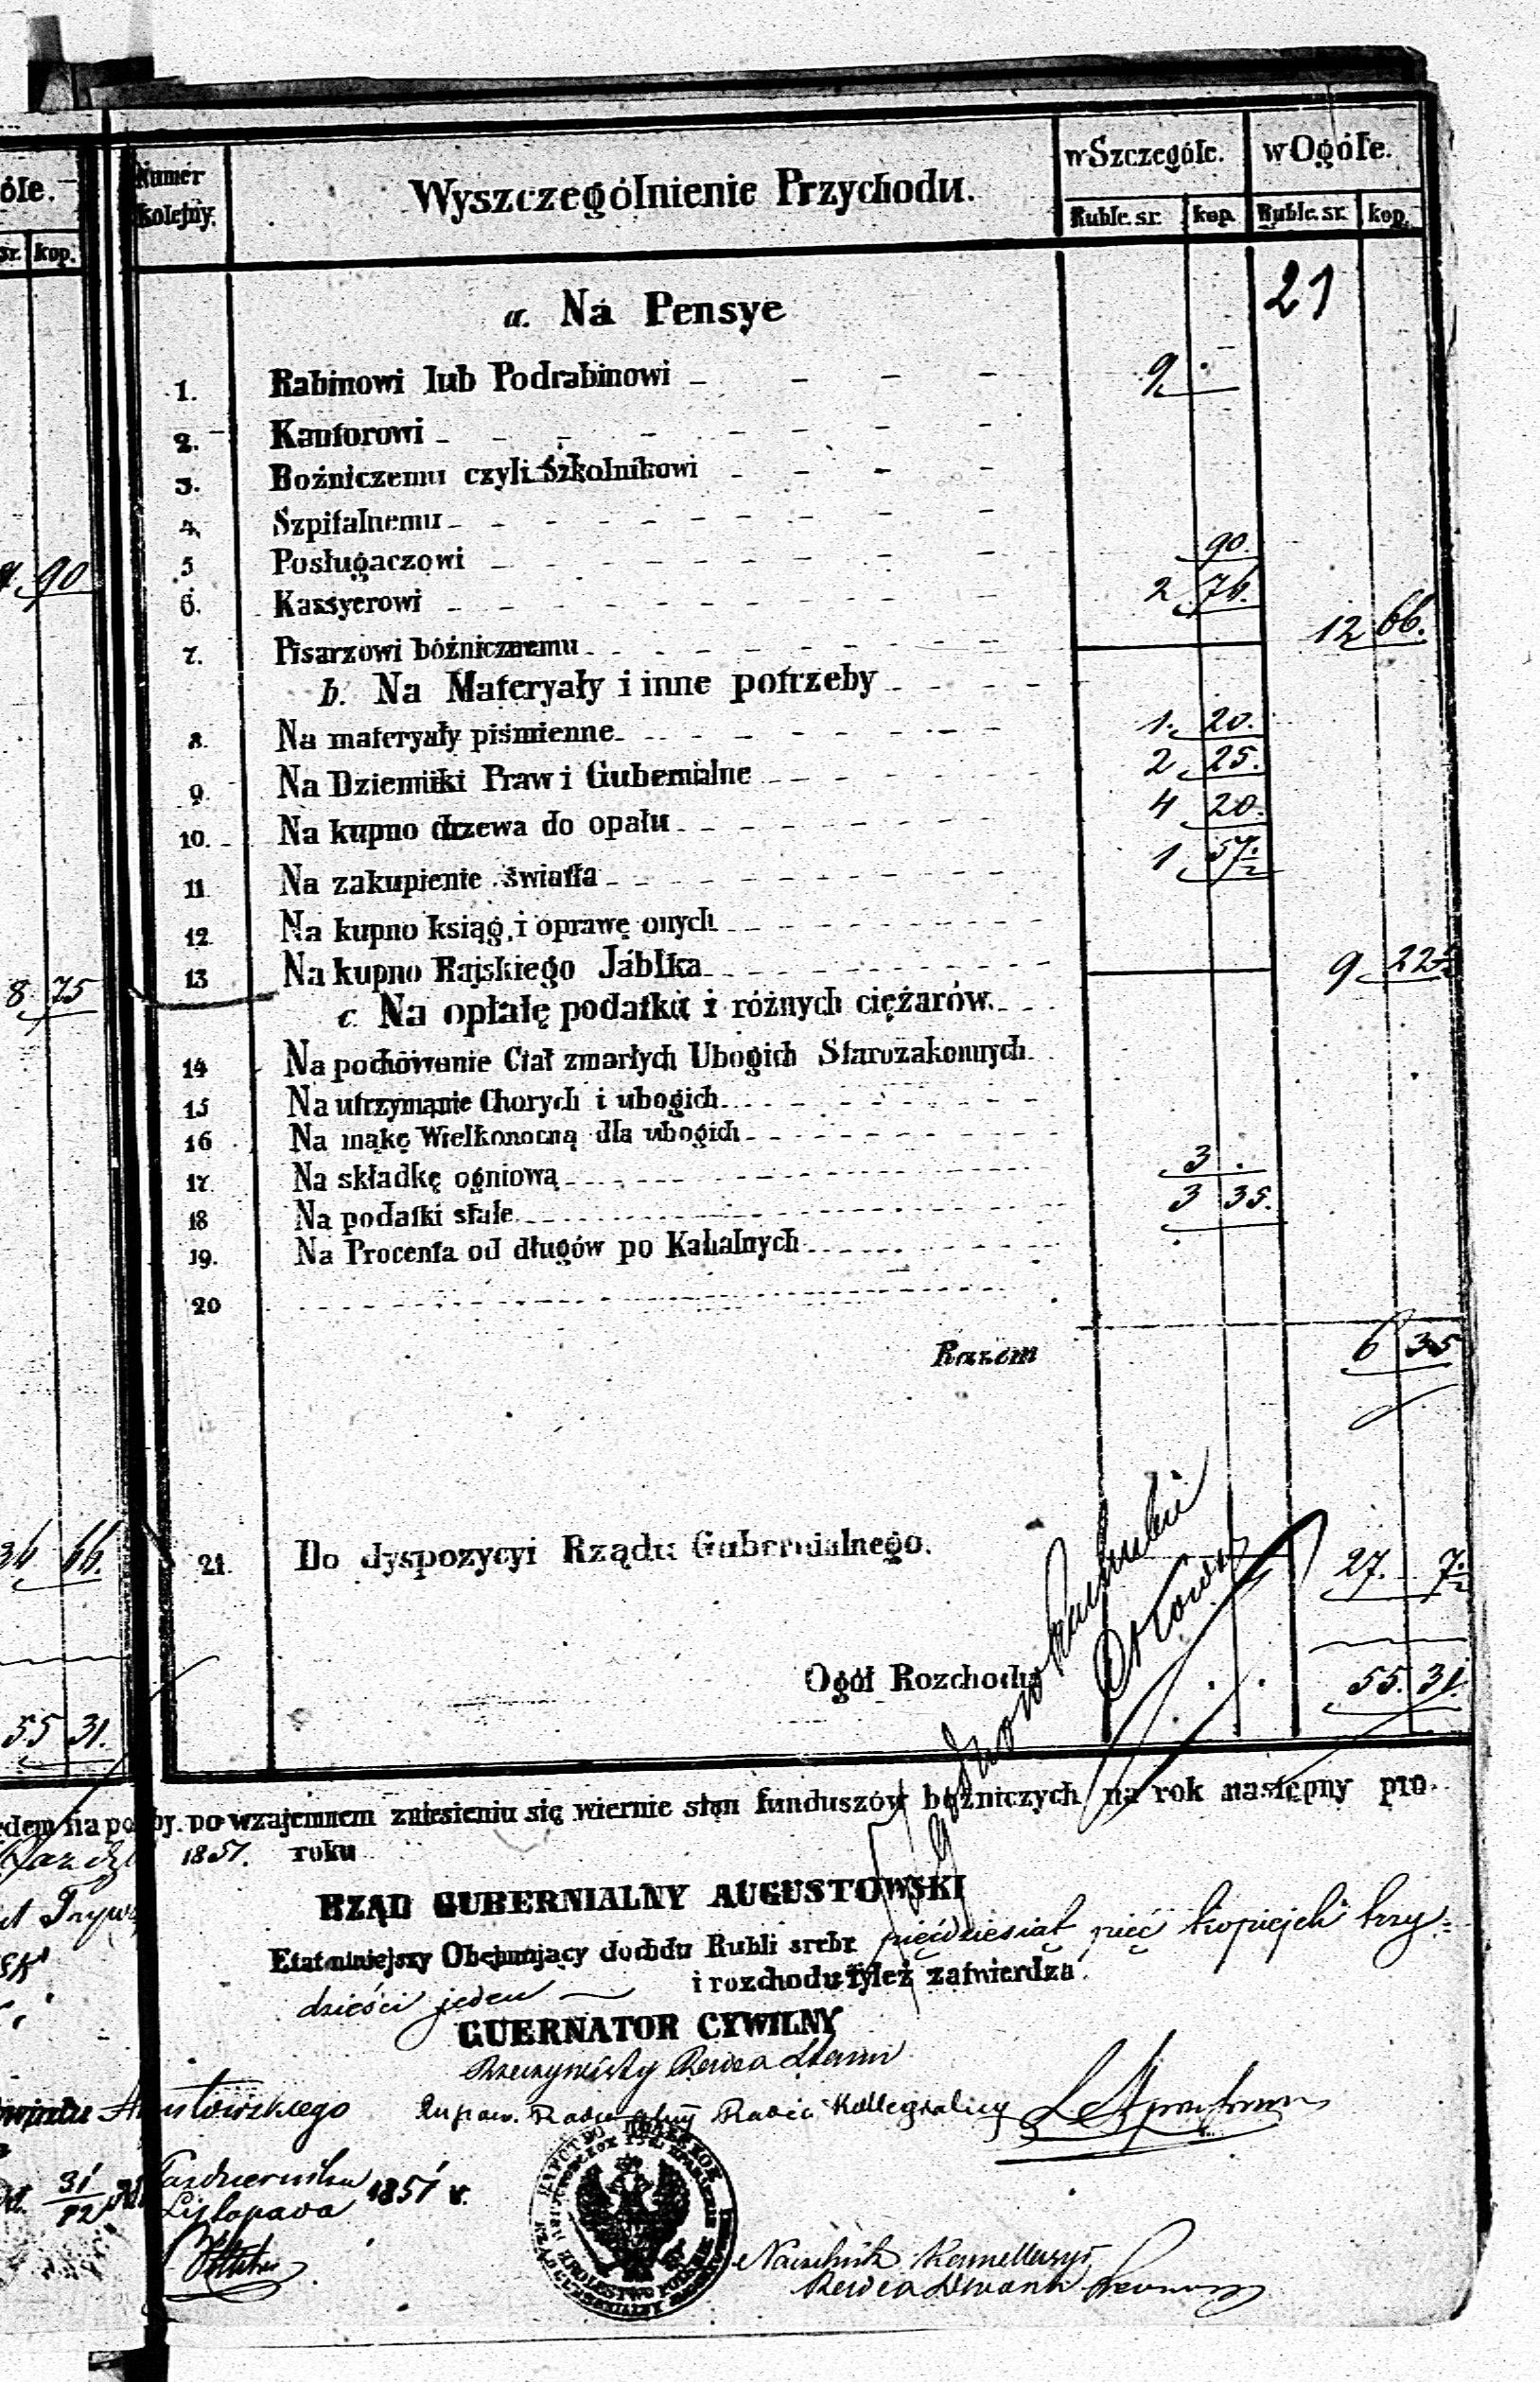 óle.
sr. kop.
90
8 75
36 66.
55 31.
Numer kolejny. Wyszczególnienie Przychodu. w Szczególe. w Ogóle.
Ruble. sr. kop. Ruble. sr. kop.
21
a. Na Pensye
1. Rabinowi lub Podrabinowi 9 .
2. Kantorowi
3. Bożniczemu czyli Szkolnikowi
4. Szpitalnemu
5 Posługaczowi 90.
6. Kassyerowi 2 76.
7. Pisarzowi bóżnicznemu 12 66.
b. Na Materyały i inne potrzeby
8. Na materyały piśmienne 1. 20.
9. Na Dzienniki Praw i Gubernialne 2 25.
10. Na kupno drzewa do opału 4 20.
11 Na zakupienie światła 1 57½
12. Na kupno ksiąg, i oprawę onych
13 Na kupno Rajskiego Jabłka 9 22½
c. Na opłatę podatku i różnych ciężarów.
14 Na pochówanie Ciał zmarłych Ubogich Starozakonnych
15 Na utrzymanie Chorych i ubogich
16 Na mąkę Wielkonocną dla ubogich
17. Na składkę ogniową 3 .
18 Na podatki stałe 3 35.
19. Na Procenta od długów po Kahalnych
20
Razem 6 35
21. Do dyspozycyi Rządu Gubernialnego. 27. 7½
Ogół Rozchodu 55. 31.
po wzajemnem zniesieniu się wiernie stan funduszów bożniczych na rok następny pro
1851. roku
RZĄD GUBERNIALNY AUGUSTOWSKI
Etat niniejszy Obejmujący dochdu Rubli srebr pięćdziesiąt pięć kopiejek trzy=
dzieści jeden i rozchodu tyleż zatwierdza.
GUERNATOR CYWILNY
Rzeczywisty Radca Stanu
Radca Kollegialny
31/12 Października
Listopada 1851 r.
Naczelnik Kancellaryi
Radca Dworu